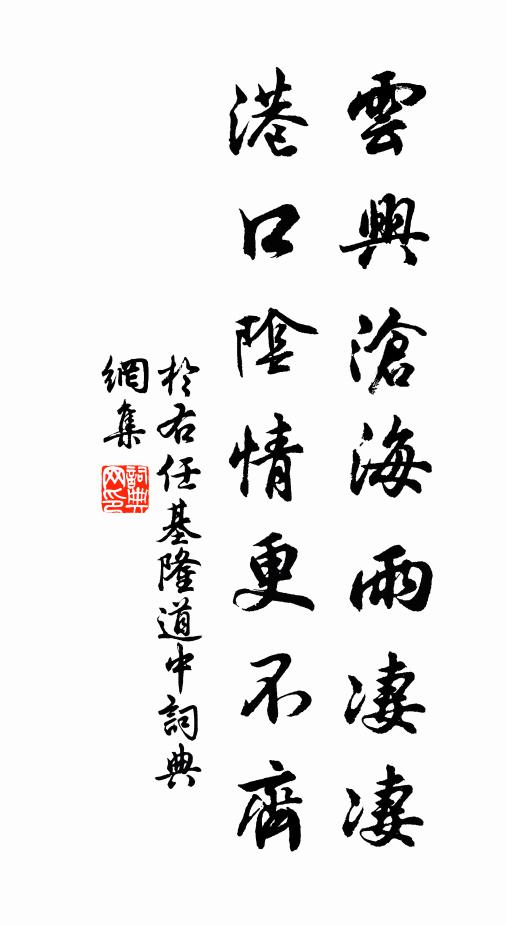 雲興滄海雨凄凄
港口陰情更不齊
於右任基隆道中詞典
網集
詞典
网印